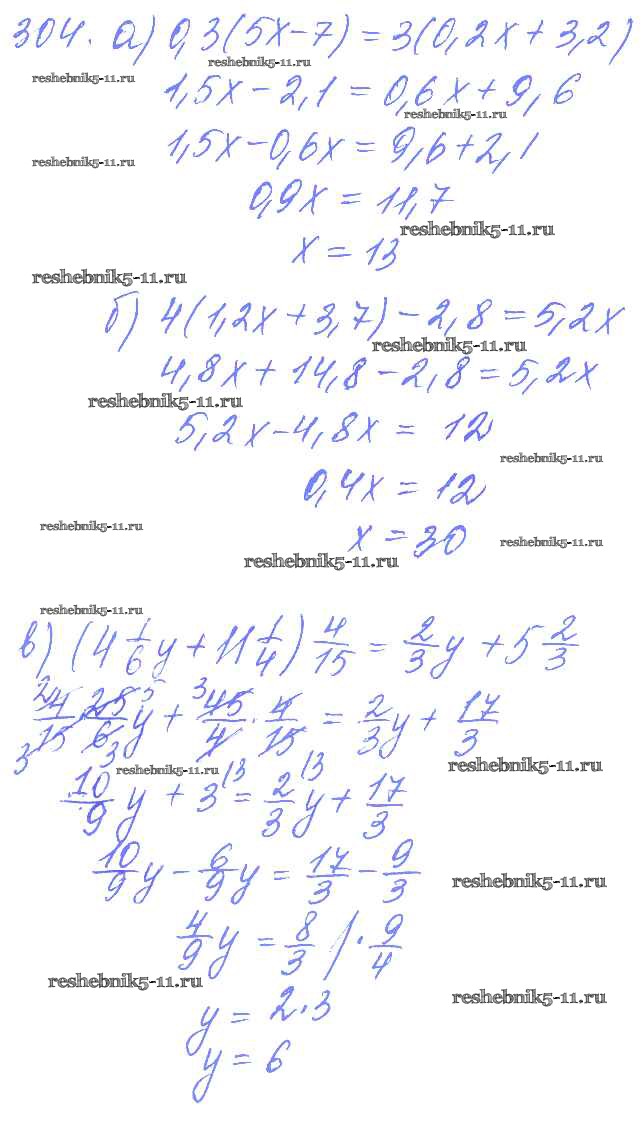 304. а) 0,3(5x-7)=3(0,2x+3,2)
reshebnik5-11.ru
reshebnik5-11.ru
1,5x-2,1=0,6x+9,6
reshebnik5-11.ru
1,5x-0,6x=9,6+2,1
reshebnik5-11.ru
0,9x=11,7
reshebnik5-11.ru
x=13
reshebnik5-11.ru
б) 4(1,2x+3,7)-2,8=5,2x
reshebnik5-11.ru
4,8x+14,8-2,8=5,2x
reshebnik5-11.ru
5,2x-4,8x=12
reshebnik5-11.ru
0,4x=12
reshebnik5-11.ru
x=30
reshebnik5-11.ru
reshebnik5-11.ru
reshebnik5-11.ru
в) (4 1/6 y + 11 1/4) 4/15 = 2/3 y + 5 2/3
4/15 · 25/6 y + 45/4 · 4/15 = 2/3 y + 17/3
2 5 3
3 3
reshebnik5-11.ru
reshebnik5-11.ru
10/9 y + 3 \3 = 2/3 \3 y + 17/3
10/9 y - 6/9 y = 17/3 - 9/3
reshebnik5-11.ru
4/9 y = 8/3 | · 9/4
reshebnik5-11.ru
y = 2·3
reshebnik5-11.ru
y = 6